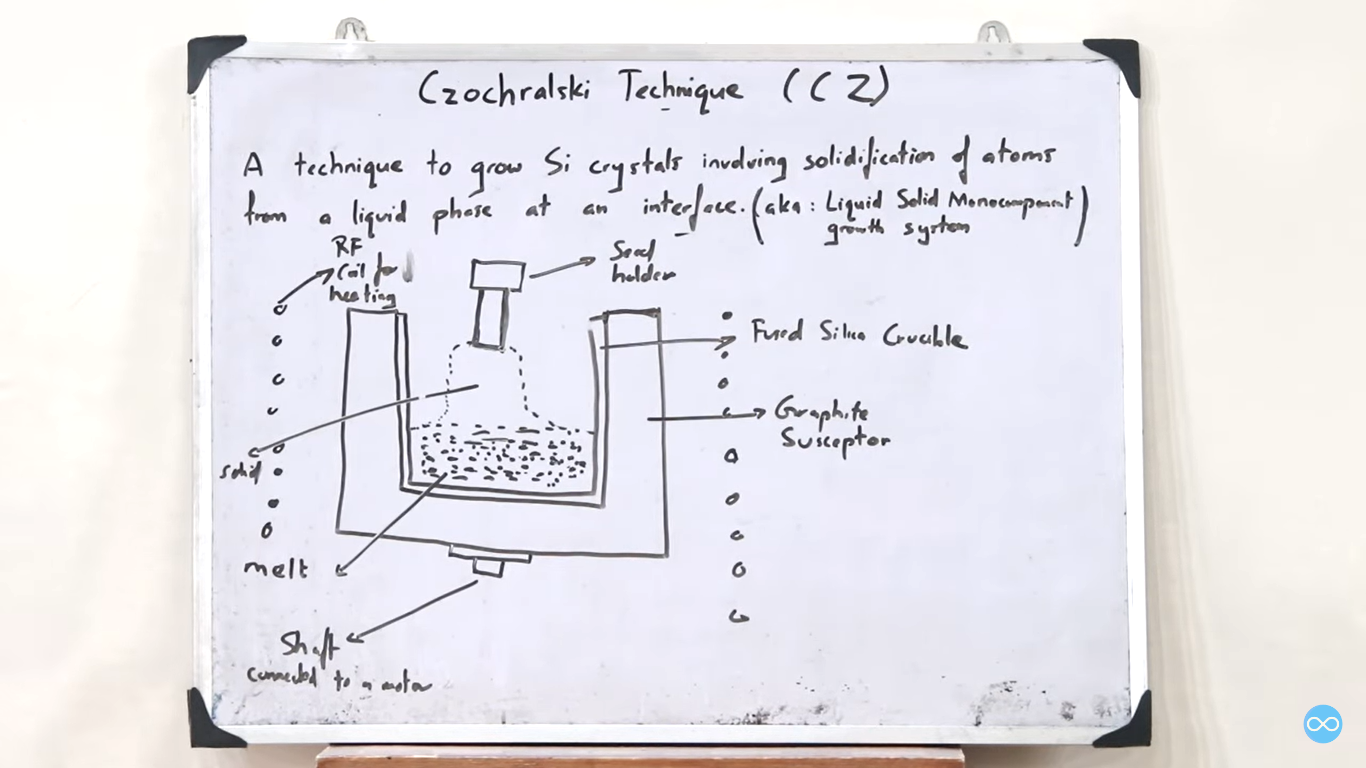 Czochralski Technique (CZ)
A technique to grow Si crystals involving solidification of atoms
from a liquid phase at an interface. (aka: Liquid Solid Monocomponent
growth system)
RF
Coil for
heating
Seed
holder
Fused Silica Crucible
Graphite
Susceptor
solid
melt
Shaft
connected to a motor